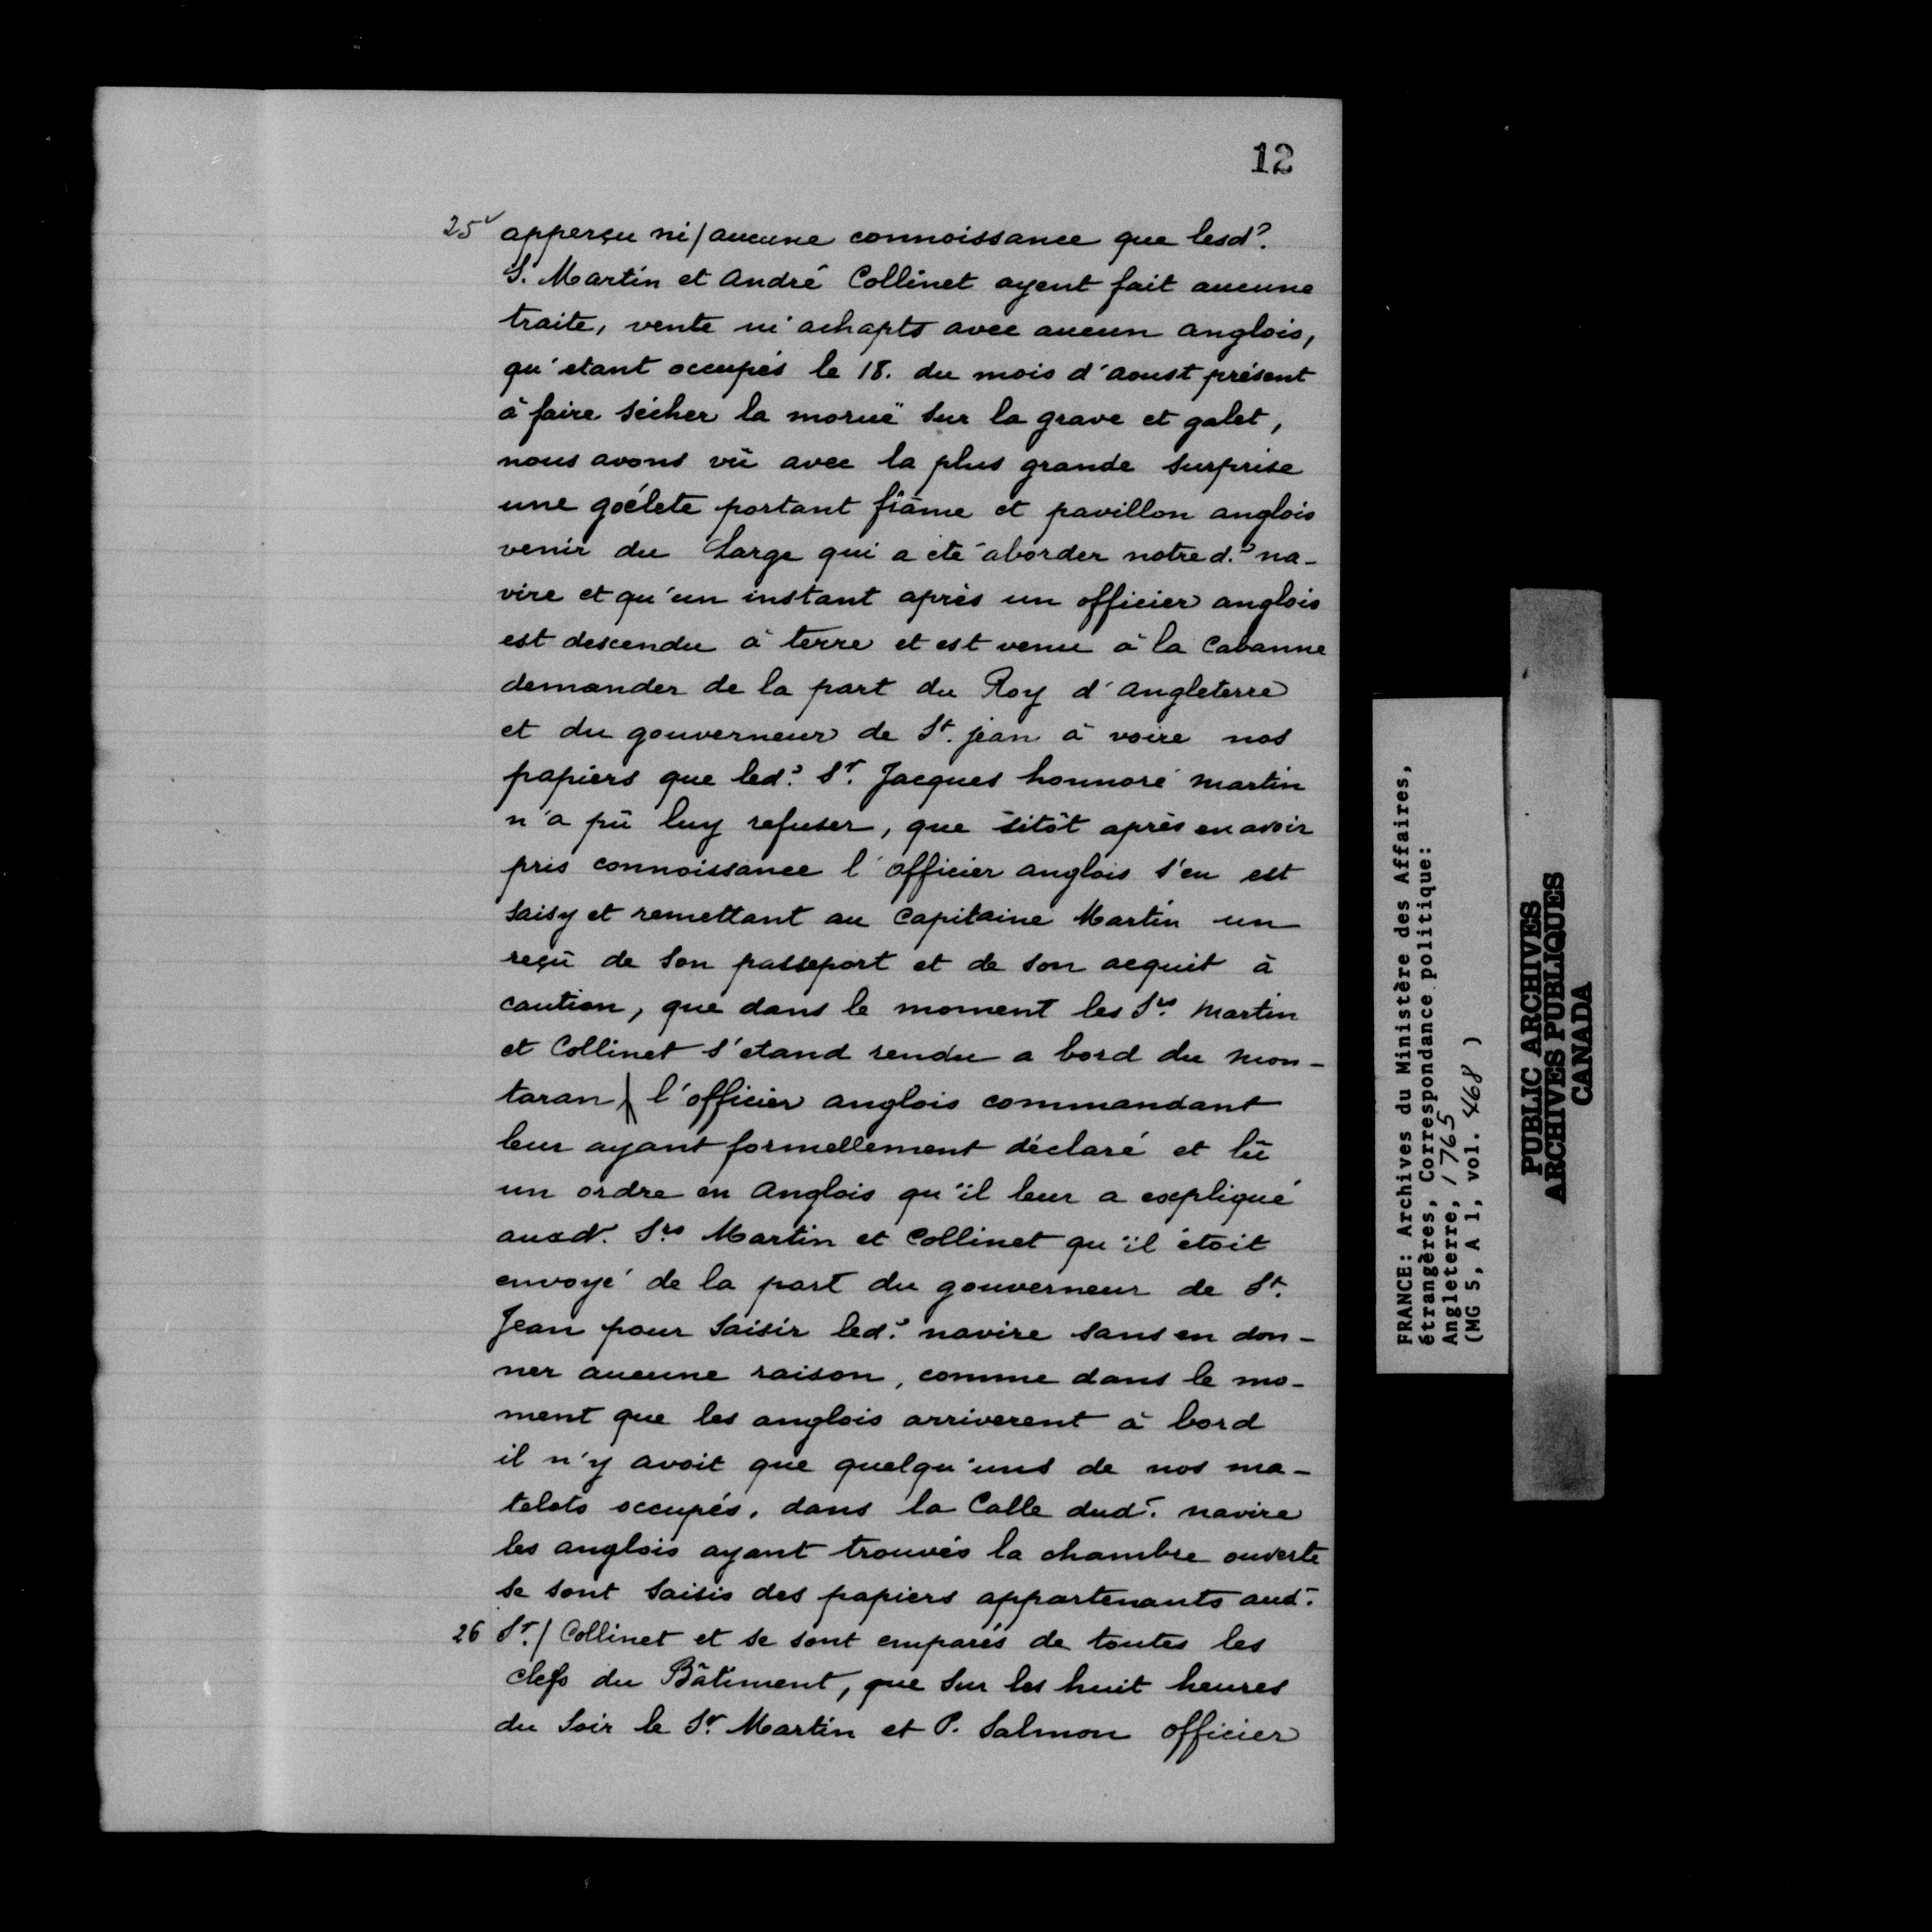 12
25v apperçu ni/aucune connoissance que lesd.
S. Martin et André Collinet ayent fait aucune
traite, vente ni achapts avec aucun anglois,
qu'etant occupés le 18. du mois d'aoust présent
à faire sécher la moruë sur la grave et galet,
nous avons vû avec la plus grande surprise
une goélete portant flâme et pavillon anglois
venir du Large qui a eté aborder notre d. na-
vire et qu'un instant après un officier anglois
est descendu à terre et est venu à la Cabanne
demander de la part du Roy d'angleterre
et du gouverneur de St. jean à voire nos
papiers que led. Sr. Jacques honnoré martin
n'a pû luy refuser, que sitôt après en avoir
pris connoissance l'officier anglois s'en est
saisy et remettant au capitaine Martin un
reçû de son passeport et de son acquit à
caution, que dans le moment les Srs. Martin
et Collinet s'etand rendu a bord du mon-
taran l'officier anglois commandant
leur ayant formellement déclaré et lû
un ordre en Anglois qu'il leur a expliqué
auxd. Srs Martin et Collinet qu'il étoit
envoyé de la part du gouverneur de St.
Jean pour saisir led. navire sans en don-
ner aucune raison, comme dans le mo-
ment que les anglois arriverent à bord
il n'y avoit que quelqu'uns de nos ma-
telots occupés, dans la Calle dud. navire
les anglois ayant trouvés la chambre ouverte
se sont saisis des papiers appartenants aud.
26 Sr./ Collinet et se sont emparés de toutes les
clefs du Bâtiment, que sur les huit heures
du soir le Sr. Martin et P. Salmon officier
FRANCE: Archives du Ministère des Affaires,
étrangères, Correspondance politique:
Angleterre, 1765
(MG 5, A 1, vol. 468 )
PUBLIC ARCHIVES
ARCHIVES PUBLIQUES
CANADA